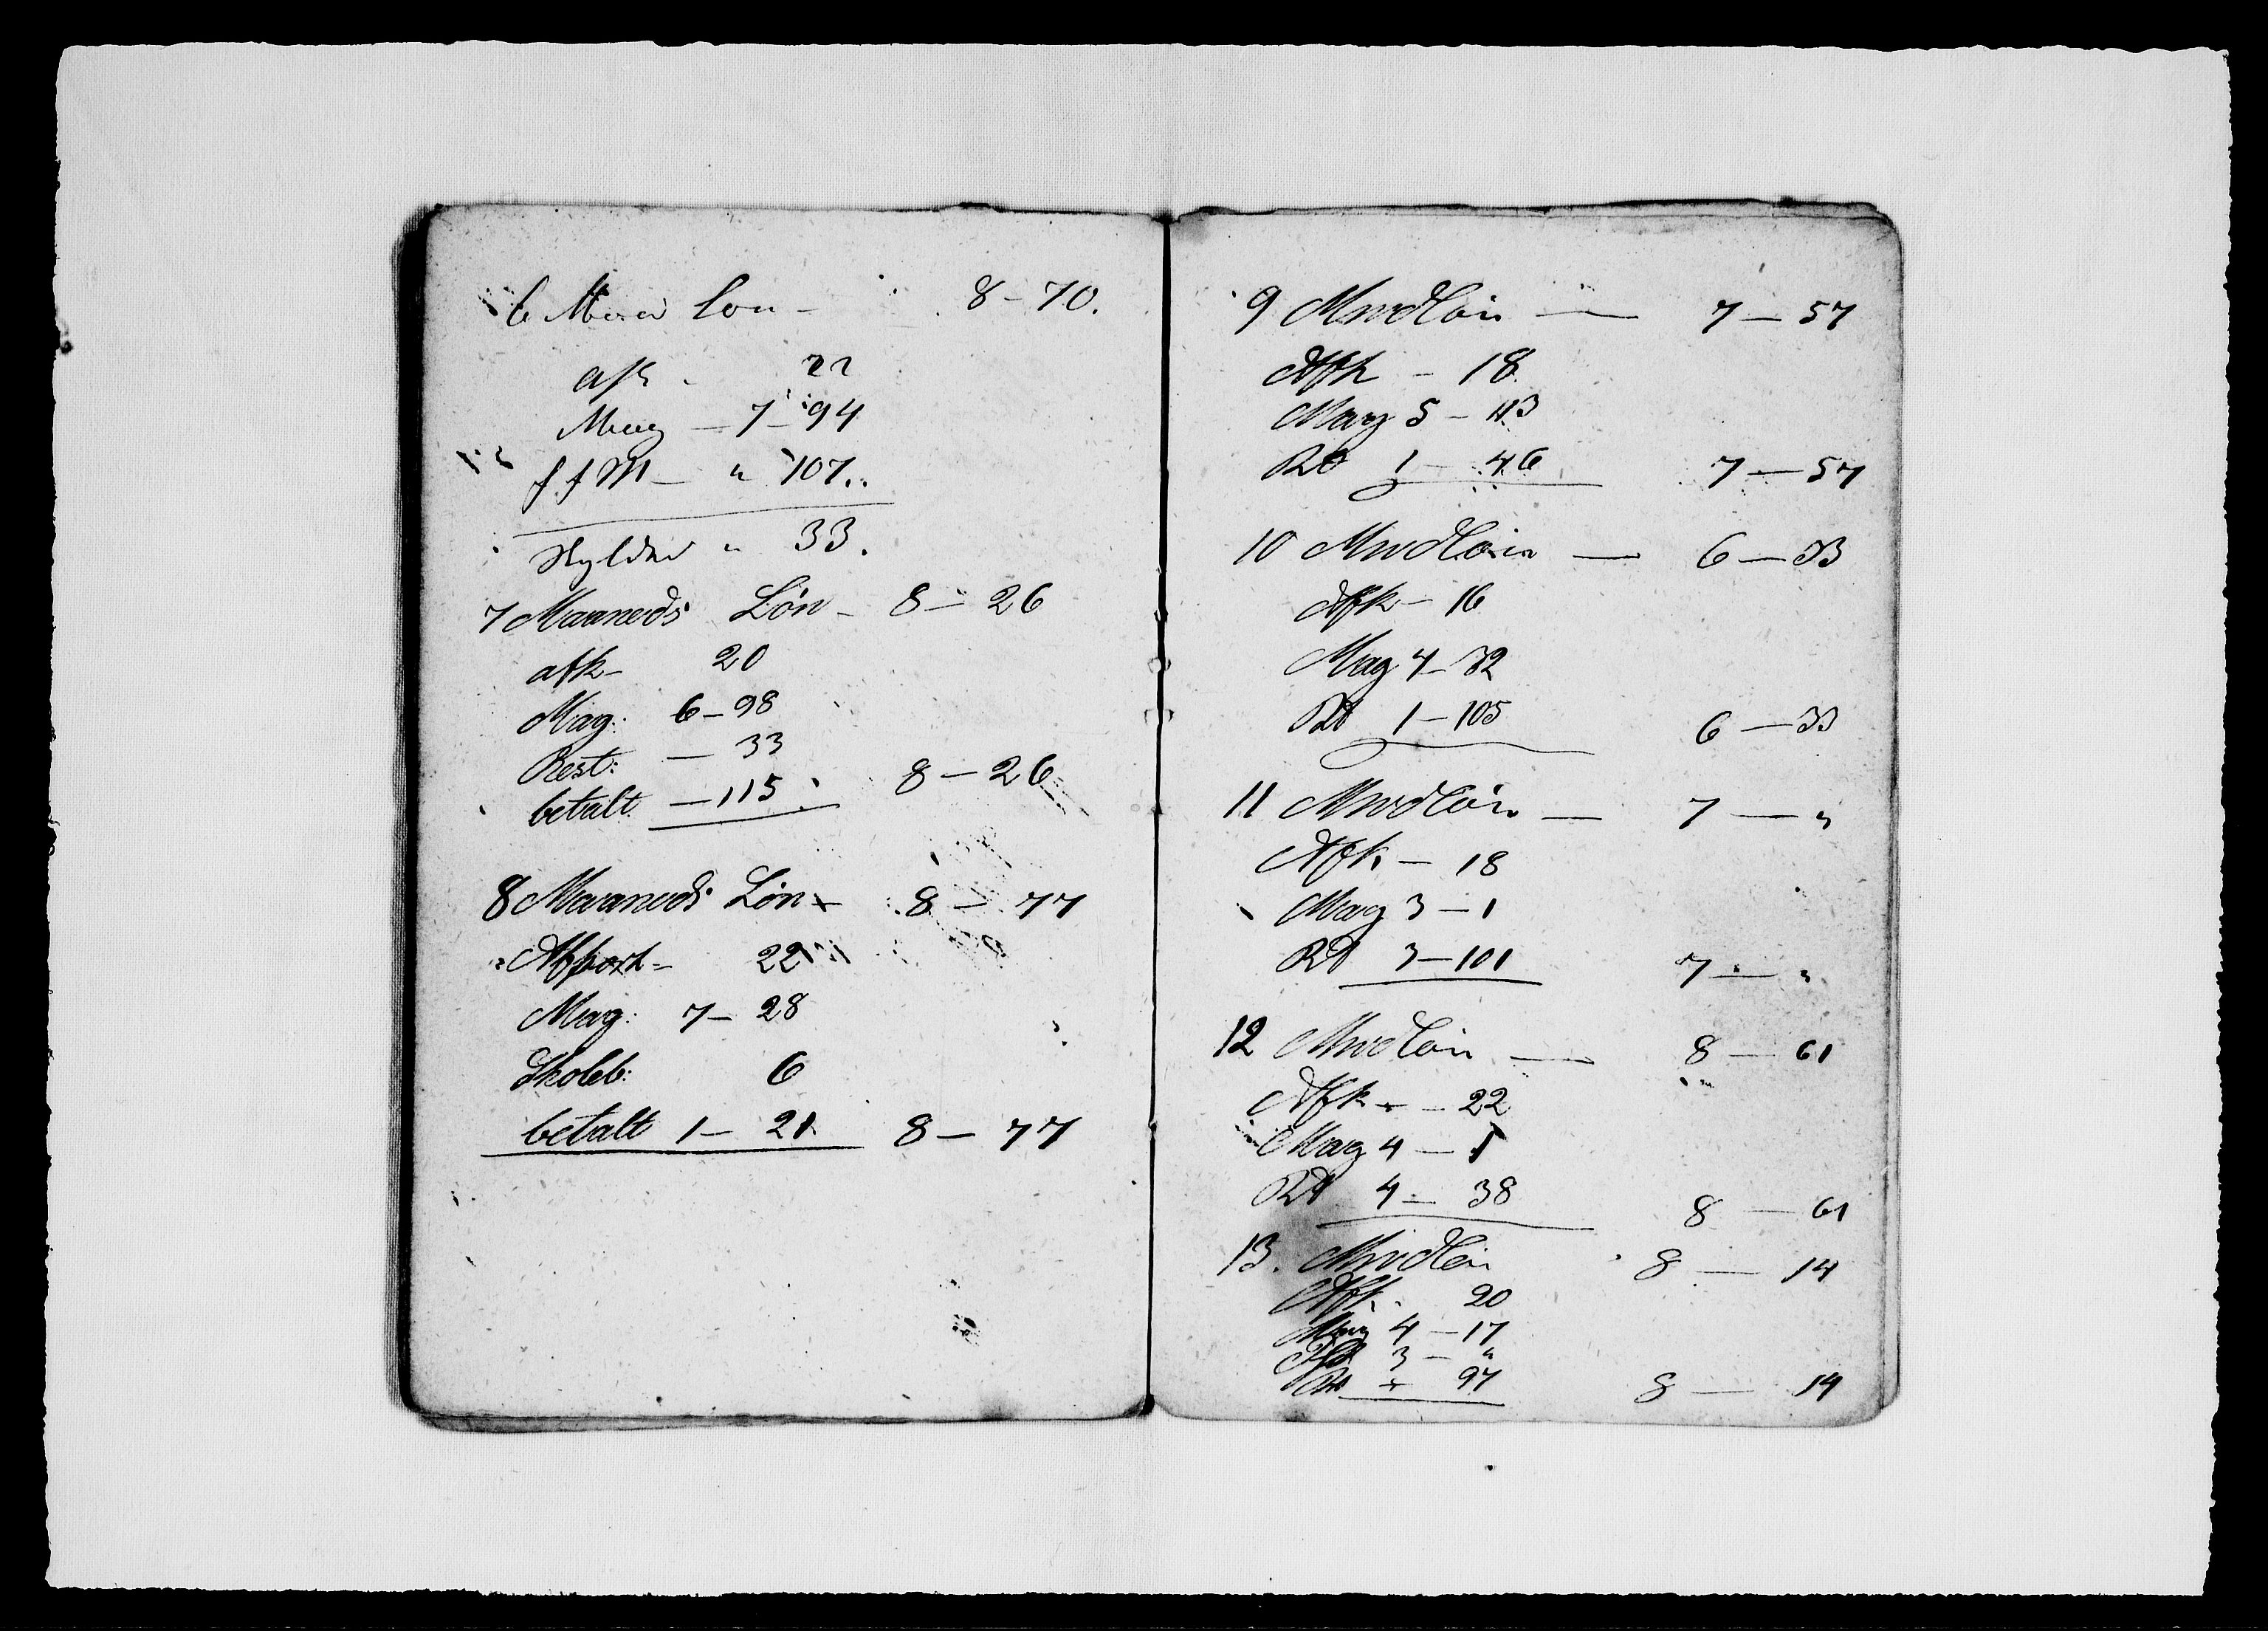 6 Maa Lon - 8 - 70.
afk - 22
Mag - 7 - 94
f f M - " 107.
skylder " 33.
7 Maaneds Lön - 8 - 26
afk - 20
Mag: 6 - 98
Rest: - 33
betalt - 115 8 - 26
8 Maaneds Lön - 8 - 77
Afkort - 22
Mag: 7 - 28
Skoleb: 6
betalt 1 - 21 8 - 77
9 MndLön — 7 - 57
Afk - 18
Mag 5 - 113
Rd 1 - 46 7 - 57
10 MndLön — 6 - 33
Afk - 16
Mag 4 - 32
Rd 1 - 105 6 - 33
11 MndLön — 7 - "
Afk - 18
Mag 3 - 1
Rd 3 - 101 7 - "
12 MndLön — 8 - 61
Afk - 22
Mag 4 - 1
Rd 4 - 38 8 - 61
13. MndLön 8 - 14
Afk. 20
Mag 4 - 17
3 - "
Rd - 97 8 - 14